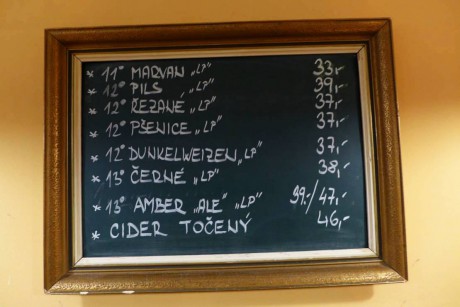 * 11° MARVAN „LP“ 33,-
* 12° PILS „LP“ 39,-
* 12° ŘEZANÉ „LP“ 37,-
* 12° PŠENICE „LP“ 37,-
* 12° DUNKELWEIZEN „LP“ 37,-
* 13° ČERNÉ „LP“ 38,-
* 13° AMBER „ALE“ „LP“ 39,-/47,-
* CIDER TOČENÝ 46,-